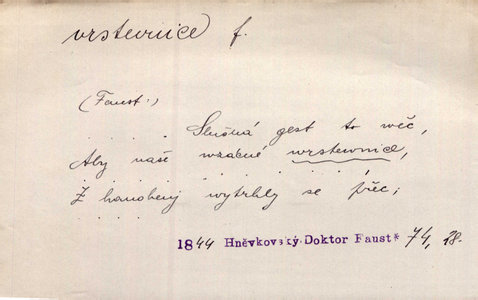 vrstevnice f.
(Faust:)
. . . . . Slušná gest to wěc,
Aby naše wzácné wrstewnice,
Z hanobený wytrhly se přec;
1844 Hněvkovský Doktor Faust* 74, 28.